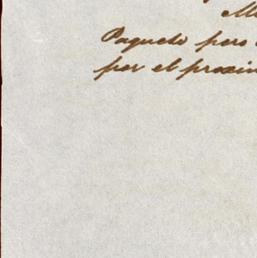 Paquete pero
por el proxim